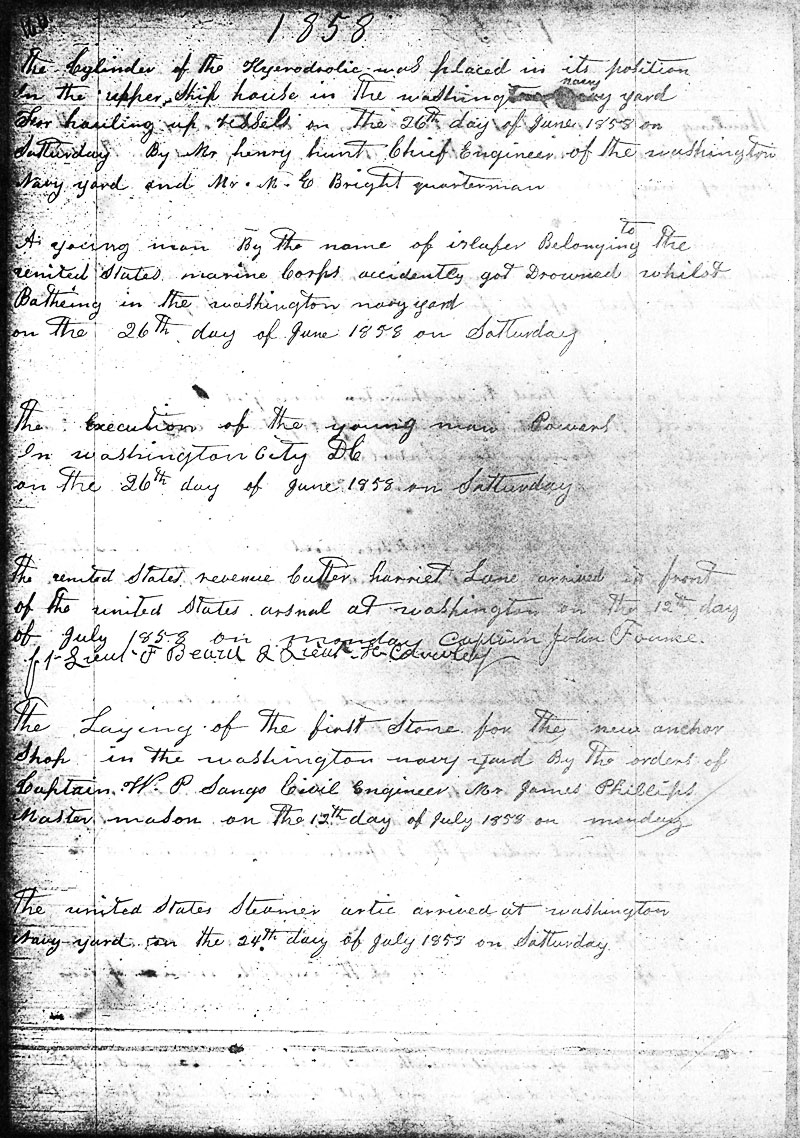 1858
The Cylinder of the Hyerodrolic was placed in its position
In the upper Ship house in the washington navy yard
For hauling up vessels on the 26th day of June 1858 on
Satturday By Mr henry hunt Chief Engineer of the washington
Navy yard and Mr. M. C Bright quarterman
A young man By the name of Belonging to the
united States marine Corps accidently got Drowned whilst
Batheing in the washington navy yard
on the 26th day of June 1858 on Satturday
The Execution of the young man Powers
In washington City DC
on the 26th day of June 1858 on Satturday
The united States revenue Cutter harriet Lane arrived in front
of the united States arsnal at washington on the 12th day
of July 1858 on monday Captain John Faunce.
1st Lieut F Beard 2 Lieut H
The Laying of the first Stone for the new anchor
Shop in the washington navy yard By the orders of
Captain W. P Sango Civil Engineer Mr James Phillips
Master mason on the 12th day of July 1858 on monday
The united States Steamer artic arrived at washington
Navy yard on the 24th day of July 1858 on Satturday